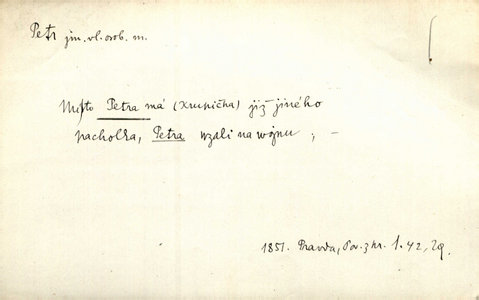 Petr jm. vl. osob. m.
Místo Petra má (Krupička) již jiného
pacholka, Petra vzali na vojnu; –
1851. Pravda, Pov. z kr. 1. 42, 29.